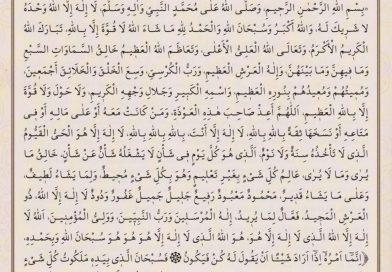 «بِسْمِ اللَّهِ الرَّحْمَنِ الرَّحِيمِ، وَصَلَّى اللَّهُ عَلَى مُحَمَّدٍ النَّبِيِّ وَآلِهِ وَسَلَّمَ، لَا إِلَهَ إِلَّا اللَّهُ وَحْدَهُ
لَا شَرِيكَ لَهُ، وَاللَّهُ أَكْبَرُ وَسُبْحَانَ اللَّهِ وَالْحَمْدُ لِلَّهِ مَا شَاءَ اللَّهُ لَا قُوَّةَ إِلَّا بِاللَّهِ، تَبَارَكَ اللَّهُ
الْكَرِيمُ الْأَكْرَمُ، وَتَعَالَى اللَّهُ الْعَلِيُّ الْأَعْلَى، وَتَعَاظَمَ اللَّهُ الْعَظِيمُ خَالِقُ السَّمَاوَاتِ السَّبْعِ
وَمَا فِيهِنَّ وَمَا بَيْنَهُنَّ، وَإِلَهُ الْعَرْشِ الْعَظِيمِ، وَرَبُّ الْكُرْسِيِّ، وَسِعَ الْخَلْقَ وَالْخَلَائِقَ أَجْمَعِينَ،
وَمُمِيتُهُمْ وَمُعِيدُهُمْ بِنُورِهِ الْعَظِيمِ، وَاسْمِهِ الْكَبِيرِ وَجَلَالِ وَجْهِهِ الْكَرِيمِ، وَلَا حَوْلَ وَلَا قُوَّةَ
إِلَّا بِاللَّهِ الْعَظِيمِ، اللَّهُمَّ أَعِذْ صَاحِبَ هَذِهِ الْعُوذَةِ، وَمَنْ كَانَتْ مَعَهُ أَوْ عَلَى مَالِهِ أَوْ فِي
مَتَاعِهِ أَوْ نَسَخَهَا ثِقَةً بِاللَّهِ، لَا إِلَهَ إِلَّا أَنْتَ، بِاللَّهِ بِاللَّهِ بِاللَّهِ، لَا إِلَهَ إِلَّا هُوَ الْحَيُّ الْقَيُّومُ
الَّذِي لَا تَأْخُذُهُ سِنَةٌ وَلَا نَوْمٌ، الَّذِي هُوَ كُلَّ يَوْمٍ فِي شَأْنٍ لَا يَشْغَلُهُ شَأْنٌ عَنْ شَأْنٍ، خَالِقُ مَا
يُرَى وَمَا لَا يُرَى، عَالِمُ كُلِّ شَيْءٍ بِغَيْرِ تَعْلِيمٍ وَهُوَ بِكُلِّ شَيْءٍ مُحِيطٌ، وَلِمَا يَشَاءُ لَطِيفٌ،
وَعَلَى مَا يَشَاءُ قَدِيرٌ، مَحْمُودٌ مَعْبُودٌ رَفِيعٌ جَلِيلٌ جَمِيلٌ غَفُورٌ وَدُودٌ لَا إِلَهَ إِلَّا اللَّهُ، ذُو
الْعَرْشِ الْمَجِيدِ، فَعَّالٌ لِمَا يُرِيدُ، إِلَهُ الْمُرْسَلِينَ وَرَبُّ النَّبِيِّينَ، وَوَلِيُّ الْمُؤْمِنِينَ، اللَّهُ لَا
إِلَهَ إِلَّا هُوَ، هُوَ اللَّهُ الَّذِي لَا إِلَهَ إِلَّا هُوَ، هُوَ اللَّهُ الَّذِي لَا إِلَهَ إِلَّا هُوَ هُوَ سُبْحَانَ اللَّهِ وَبِحَمْدِهِ،
﴿إِنَّمَا أَمْرُهُ إِذَا أَرَادَ شَيْئًا أَنْ يَقُولَ لَهُ كُنْ فَيَكُونُ ۞ فَسُبْحَانَ الَّذِي بِيَدِهِ مَلَكُوتُ كُلِّ شَيْءٍ